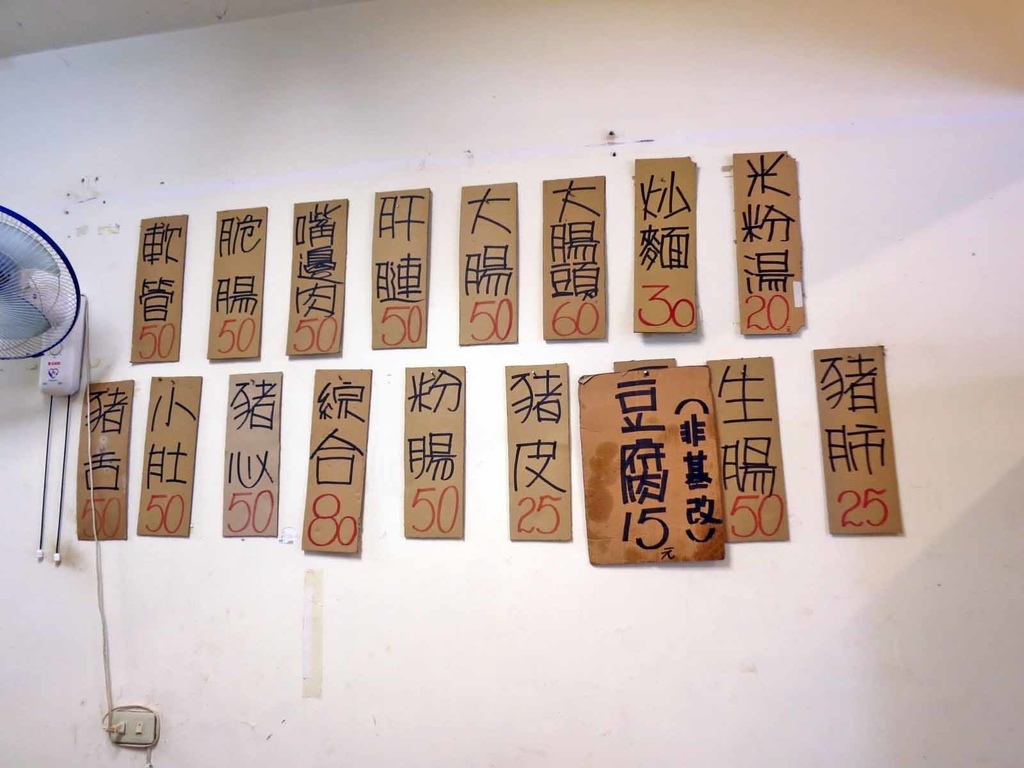 米粉湯
20元
炒麵
30
大腸頭
60
大腸
50
肝連
50
嘴邊肉
50
脆腸
50
軟管
50
豬肺
25
生腸
50
豆腐
15元
（非基改）
豬皮
25
粉腸
50
綜合
80
豬心
50
小肚
50
豬舌
50